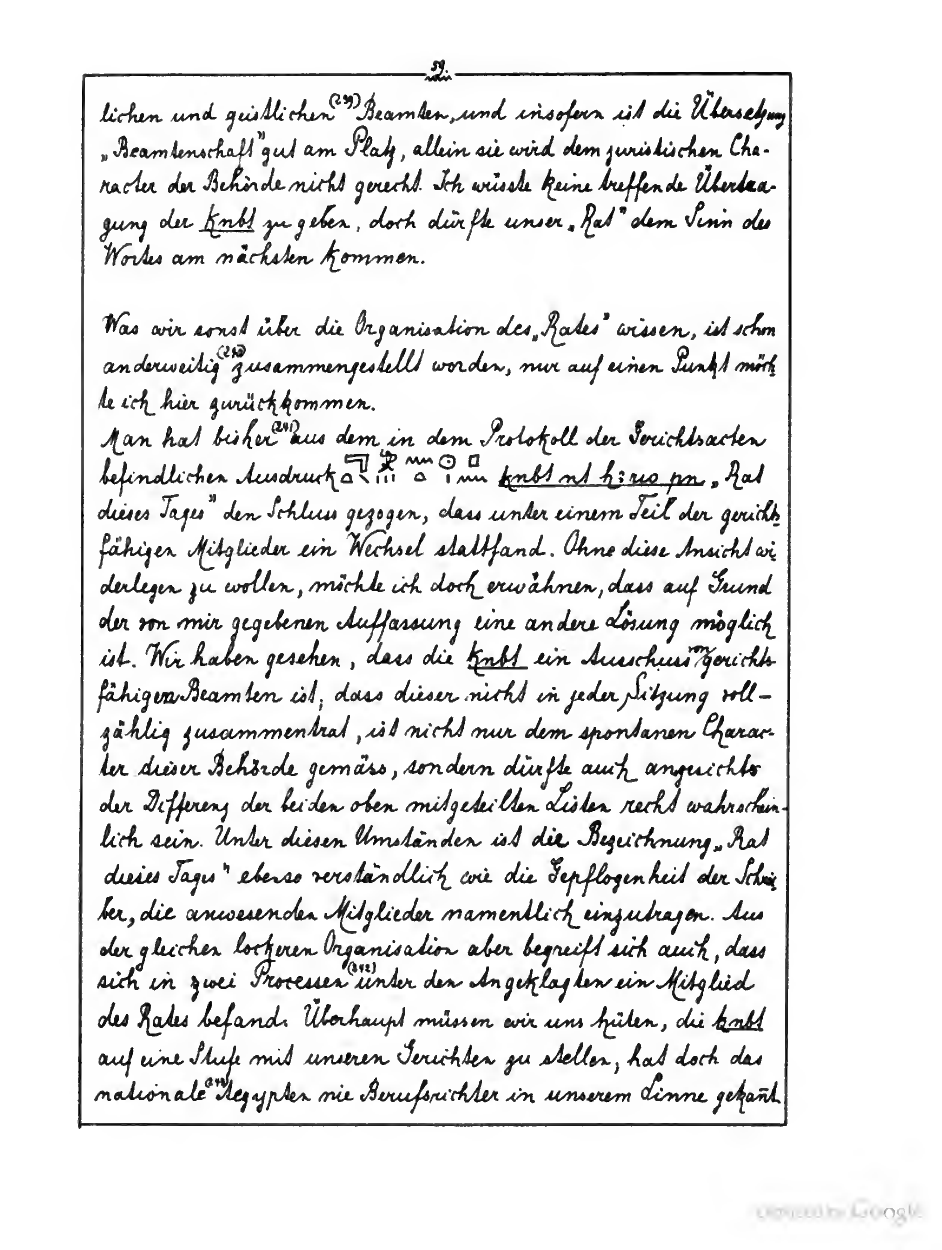 59.
lichen und geistlichen (239) Beamten, und insofern ist die Übersetzung
„Beamtenschaft" gut am Platz, allein sie wird dem juristischen Cha-
racter der Behörde nicht gerecht. Ich wüsste keine treffende Übertra-
gung der knbt zu geben, doch dürfte unser „Rat" dem Sinn des
Wortes am nächsten kommen.
Was wir sonst über die Organisation des „Rates" wissen, ist schon
anderweitig (240) zusammengestellt worden, nur auf einen Punkt möch
te ich hier zurückkommen.
Man hat bisher (241) aus dem in dem Protokoll der Gerichtsacten
befindlichen Ausdruck knbt nt h:rw pn „Rat
dieses Tages" den Schluss gezogen, dass unter einem Teil der gerichts
fähigen Mitglieder ein Wechsel stattfand. Ohne diese Ansicht wi
derlegen zu wollen, möchte ich doch erwähnen, dass auf Grund
der von mir gegebenen Auffassung eine andere Lösung möglich
ist. Wir haben gesehen, dass die knbt ein Ausschuss von gerichts-
fähigen Beamten ist; dass dieser nicht in jeder Sitzung voll-
zählig zusammentrat, ist nicht nur dem spontanen Charac-
ter dieser Behörde gemäss, sondern dürfte auch angesichts
der Differenz der beiden oben mitgeteilten Listen recht wahrschein-
lich sein. Unter diesen Umständen ist die Bezeichnung „Rat
dieses Tages" ebenso verständlich wie die Gepflogenheit der Schrei
ber, die anwesenden Mitglieder namentlich einzutragen. Aus
der gleichen lockeren Organisation aber begreift sich auch, dass
sich in zwei Processen (242) unter den Angeklagten ein Mitglied
des Rates befand. Überhaupt müssen wir uns hüten, die knbt
auf eine Stufe mit unseren Gerichten zu stellen, hat doch das
nationale (243) Aegypten nie Berufsrichter in unserem Sinne gekan̄t.
Digitized by Google